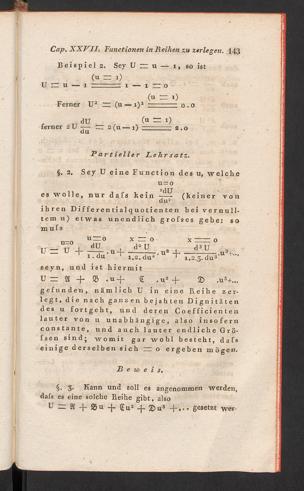 Cap. XXVII. Functionen in Reihen zu zerlegen. 143
Beispiel 2. Sey U = u — 1, so ist
(u = 1)
U = u — 1 ═══ 1 — 1 = 0
(u = 1)
Ferner U² = (u — 1)² ═══ 0.0
ferner 2U dU/du = 2(u — 1) (u = 1) ═══ 2.0
Partieller Lehrsatz.
§. 2. Sey U eine Function des u, welche
u=0
es wolle, nur daſs kein ᵃdU/duᵃ (keiner von
ihren Differentialquotienten bei vernull-
tem u) etwas unendlich groſses gebe: so
muſs
u=0 u=0 x=0 x=0
U = U + dU/1.du .u + d²U/1.2.du² .u² + d³U/1.2.3.du³ .u³...,
seyn, und ist hiermit
U = 𝔄 + 𝔅 .u + ℭ .u² + 𝔇 .u³...
gefunden, nämlich U in eine Reihe zer-
legt, die nach ganzen bejahten Dignitäten
des u fortgeht, und deren Coefficienten
lauter von u unabhängige, also insofern
constante, und auch lauter endliche Grö-
ſsen sind; womit gar wohl besteht, daſs
einige derselben sich = 0 ergeben mögen.
Beweis.
§. 3. Kann und soll es angenommen werden,
daſs es eine solche Reihe gibt, also
U = 𝔄 + 𝔅u + ℭu² + 𝔇u³ +... gesetzt wer-